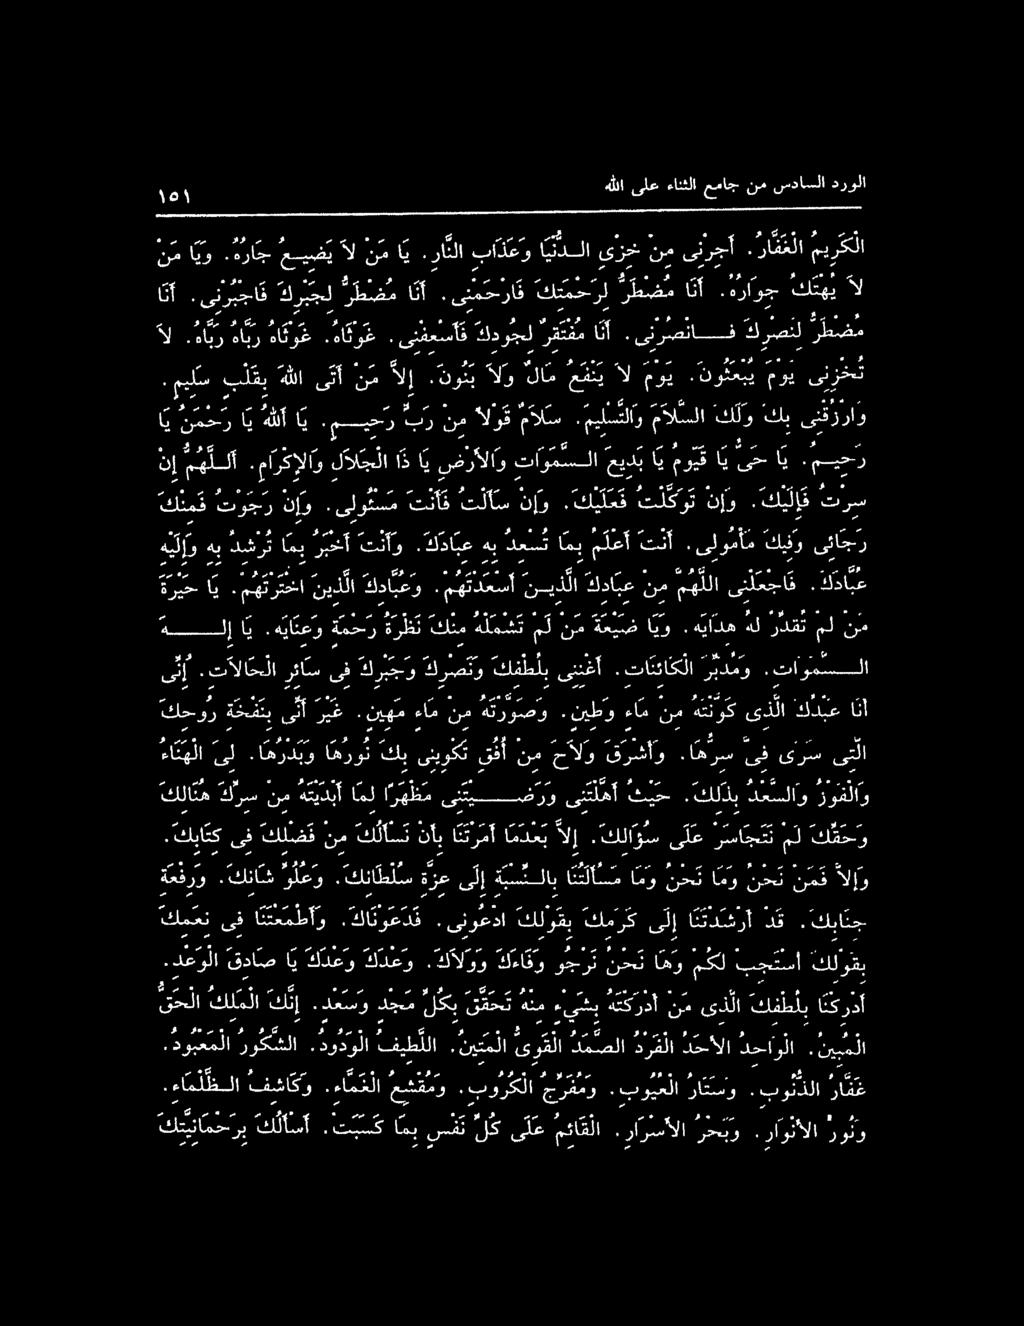 الورد السادس من جامع الثناء على الله ١٥١
الْكَرِيمُ الْغَفَّارُ. أَجِرْنِى مِنْ خِزْىِ الـدُّنْيَا وَعَذَابِ النَّارِ. يَا مَنْ لاَ يَضِيـعُ جَارُهُ. وَيَا مَنْ
لاَ يُهْتَكُ جِوَارُهُ. أَنَا مُضْطَرٌّ لِرَحْمَتِكَ فَارْحَمْنِى. أَنَا مُضْطَرٌّ لِجَبْرِكَ فَاجْبُرْنِى. أَنَا
مُضْطَرٌّ لِنَصْرِكَ فَـــانْصُرْنِى. أَنَا مُفْتَقِرٌ لِجُودِكَ فَأَسْعِفْنِى. غَوْثَاهُ. غَوْثَاهُ رَبَّاهُ رَبَّاهُ. لاَ
تُخْزِنِى يَوْمَ يُبْعَثُونَ. يَوْمَ لاَ يَنْفَعُ مَالٌ وَلاَ بَنُونَ. إِلاَّ مَنْ أَتَى اللهَ بِقَلْبٍ سَلِيمٍ.
وَارْزُقْنِى بِكَ وَلَكَ السَّلاَمَ وَالتَّسْلِيمَ. سَلاَمٌ قَوْلاً مِنْ رَبٍّ رَحِيـــمٍ. يَا أَللهُ يَا رَحْمَنُ يَا
رَحِيـمُ. يَا حَىُّ يَا قَيُّومُ يَا بَدِيعَ الـسَّمَوَاتِ وَالأَرْضِ يَا ذَا الْجَلاَلِ وَالإِكْرَامِ. أَلـلَّهُمَّ إِنْ
سِرْتُ فَإِلَيْكَ. وَإِنْ تَوَكَّلْتُ فَعَلَيْكَ. وَإِنْ سَأَلْتُ فَأَنْتَ مَسْئُولِى. وَإِنْ رَجَوْتُ فَمِنْكَ
رَجَائِى وَفِيكَ مَأْمُولِى. أَنْتَ أَعْلَمُ بِمَا تُسْعِدُ بِهِ عِبَادَكَ. وَأَنْتَ أَخْبَرُ بِمَا تُرْشِدُ بِهِ وَإِلَيْهِ
عُبَّادَكَ. فَاجْعَلْنِى اللَّهُمَّ مِنْ عِبَادِكَ الَّذِيـنَ أَسْعَدْتَهُمْ. وَعُبَّادِكَ الَّذِينَ اخْتَرْتَهُمْ. يَا حَيْرَةَ
مَنْ لَمْ تُقَدِّرْ لَهُ هِدَايَه. وَيَا ضَيْعَةَ مَنْ لَمْ تَشْمَلْهُ مِنْكَ نَظْرَةُ رَحْمَةٍ وَعِنَايَه. يَا إِلَـــهَ
الـــسَّمَوَاتِ. وَمُدَبِّرَ الْكَائِنَاتِ. أَغِثْنِى بِلُطْفِكَ وَنَصْرِكَ وَجَبْرِكَ فِى سَائِرِ الْحَالاَتِ. إِنِّى
أَنَا عَبْدُكَ الَّذِى كَوَّنْتَهُ مِنْ مَاءٍ وَطِينٍ. وَصَوَّرْتَهُ مِنْ مَاءٍ مَهِينٍ. غَيْرَ أَنِّى بِنَفْخَةِ رُوحِكَ
الَّتِى سَرَى فِىَّ سِرُّهَا. وَأَشْرَقَ وَلاَحَ مِنْ أُفُقِ تَكْوِينِى بِكَ نُورُهَا وَبَدْرُهَا. لِىَ الْهَنَاءُ
وَالْفَوْزُ وَالسَّعْدُ بِذَلِكَ. حَيْثُ أَهَّلْتَنِى وَرَضِـــيْتَنِى مَظْهَرًا لِمَا أَبْدَيْتَهُ مِنْ سِرِّكَ هُنَالِكَ
وَحَقِّكَ لَمْ نَتَجَاسَرْ عَلَى سُؤَالِكَ. إِلاَّ بَعْدَمَا أَمَرْتَنَا بِأَنْ نَسْأَلُكَ مِنْ فَضْلِكَ فِى كِتَابِكَ.
وَإِلاَّ فَمَنْ نَحْنُ وَمَا نَحْنُ وَمَا مَسْأَلَتُنَا بِالـنِّسْبَةِ إِلَى عِزَّةِ سُلْطَانِكَ. وَعُلُوِّ شَانِكَ. وَرِفْعَةِ
جَنَابِكَ. قَدْ أَرْشَدْتَنَا إِلَى كَرَمِكَ بِقَوْلِكَ ادْعُونِى. فَدَعَوْنَاكَ. وَأَطْمَعْتَنَا فِى نِعَمِكَ
بِقَوْلِكَ أَسْتَجِبْ لَكُمْ وَهَا نَحْنُ نَرْجُو وَفَاءَكَ وَوَلاَكَ. وَعْدَكَ وَعْدَكَ يَا صَادِقَ الْوَعْدِ.
أَدْرِكْنَا بِلُطْفِكَ الَّذِى مَنْ أَدْرَكْتَهُ بِشَيْءٍ مِنْهُ تَحَقَّقَ بِكُلِّ مَجْدٍ وَسَعْدٍ. إِنَّكَ الْمَلِكُ الْحَقُّ
الْمُبِينُ. الْوَاحِدُ الأَحَدُ الْفَرْدُ الصَّمَدُ الْقَوِىُّ الْمَتِينُ. اللَّطِيفُ الْوَدُودُ. الشَّكُورُ الْمَعْبُودُ.
غَفَّارُ الذُّنُوبِ. وَسَتَّارُ الْعُيُوبِ. وَمُفَرِّجُ الْكُرُوبِ. وَمُقْشِعُ الْغَمَّاءِ. وَكَاشِفُ الـظَّلْمَاءِ.
وَنُورُ الأَنْوَارِ. وَبَحْرُ الأَسْرَارِ. الْقَائِمُ عَلَى كُلِّ نَفْسٍ بِمَا كَسَبَتْ. أَسْأَلُكَ بِرَحْمَانِيَّتِكَ